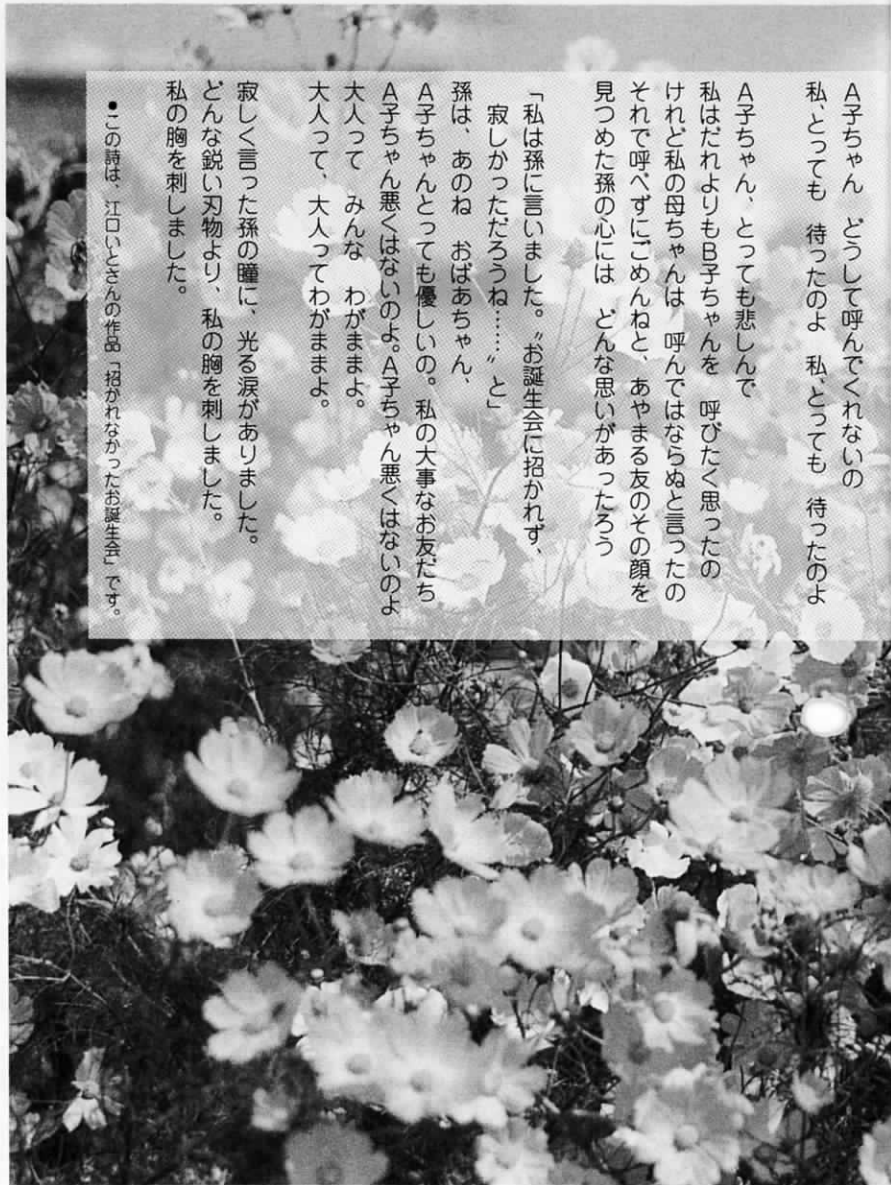 A子ちゃん　どうして呼んでくれないの
私、とっても　待ったのよ　私、とっても　待ったのよ
A子ちゃん、とっても悲しんで
私はだれよりもB子ちゃんを　呼びたく思ったの
けれど私の母ちゃんは　呼んではならぬと言ったの
それで呼べずにごめんねと、あやまる友のその顔を
見つめた孫の心には　どんな思いがあったろう
「私は孫に言いました。〝お誕生会に招かれず、
寂しかっただろうね……〟と」
孫は、あのね　おばあちゃん、
A子ちゃんとっても優しいの。私の大事なお友だち
A子ちゃん悪くはないのよ。A子ちゃん悪くはないのよ
大人って　みんな　わがままよ。
大人って、大人ってわがままよ。
寂しく言った孫の瞳に、光る涙がありました。
どんな鋭い刃物より、私の胸を刺しました。
私の胸を刺しました。
●この詩は、江口いとさんの作品「招かれなかったお誕生会」です。